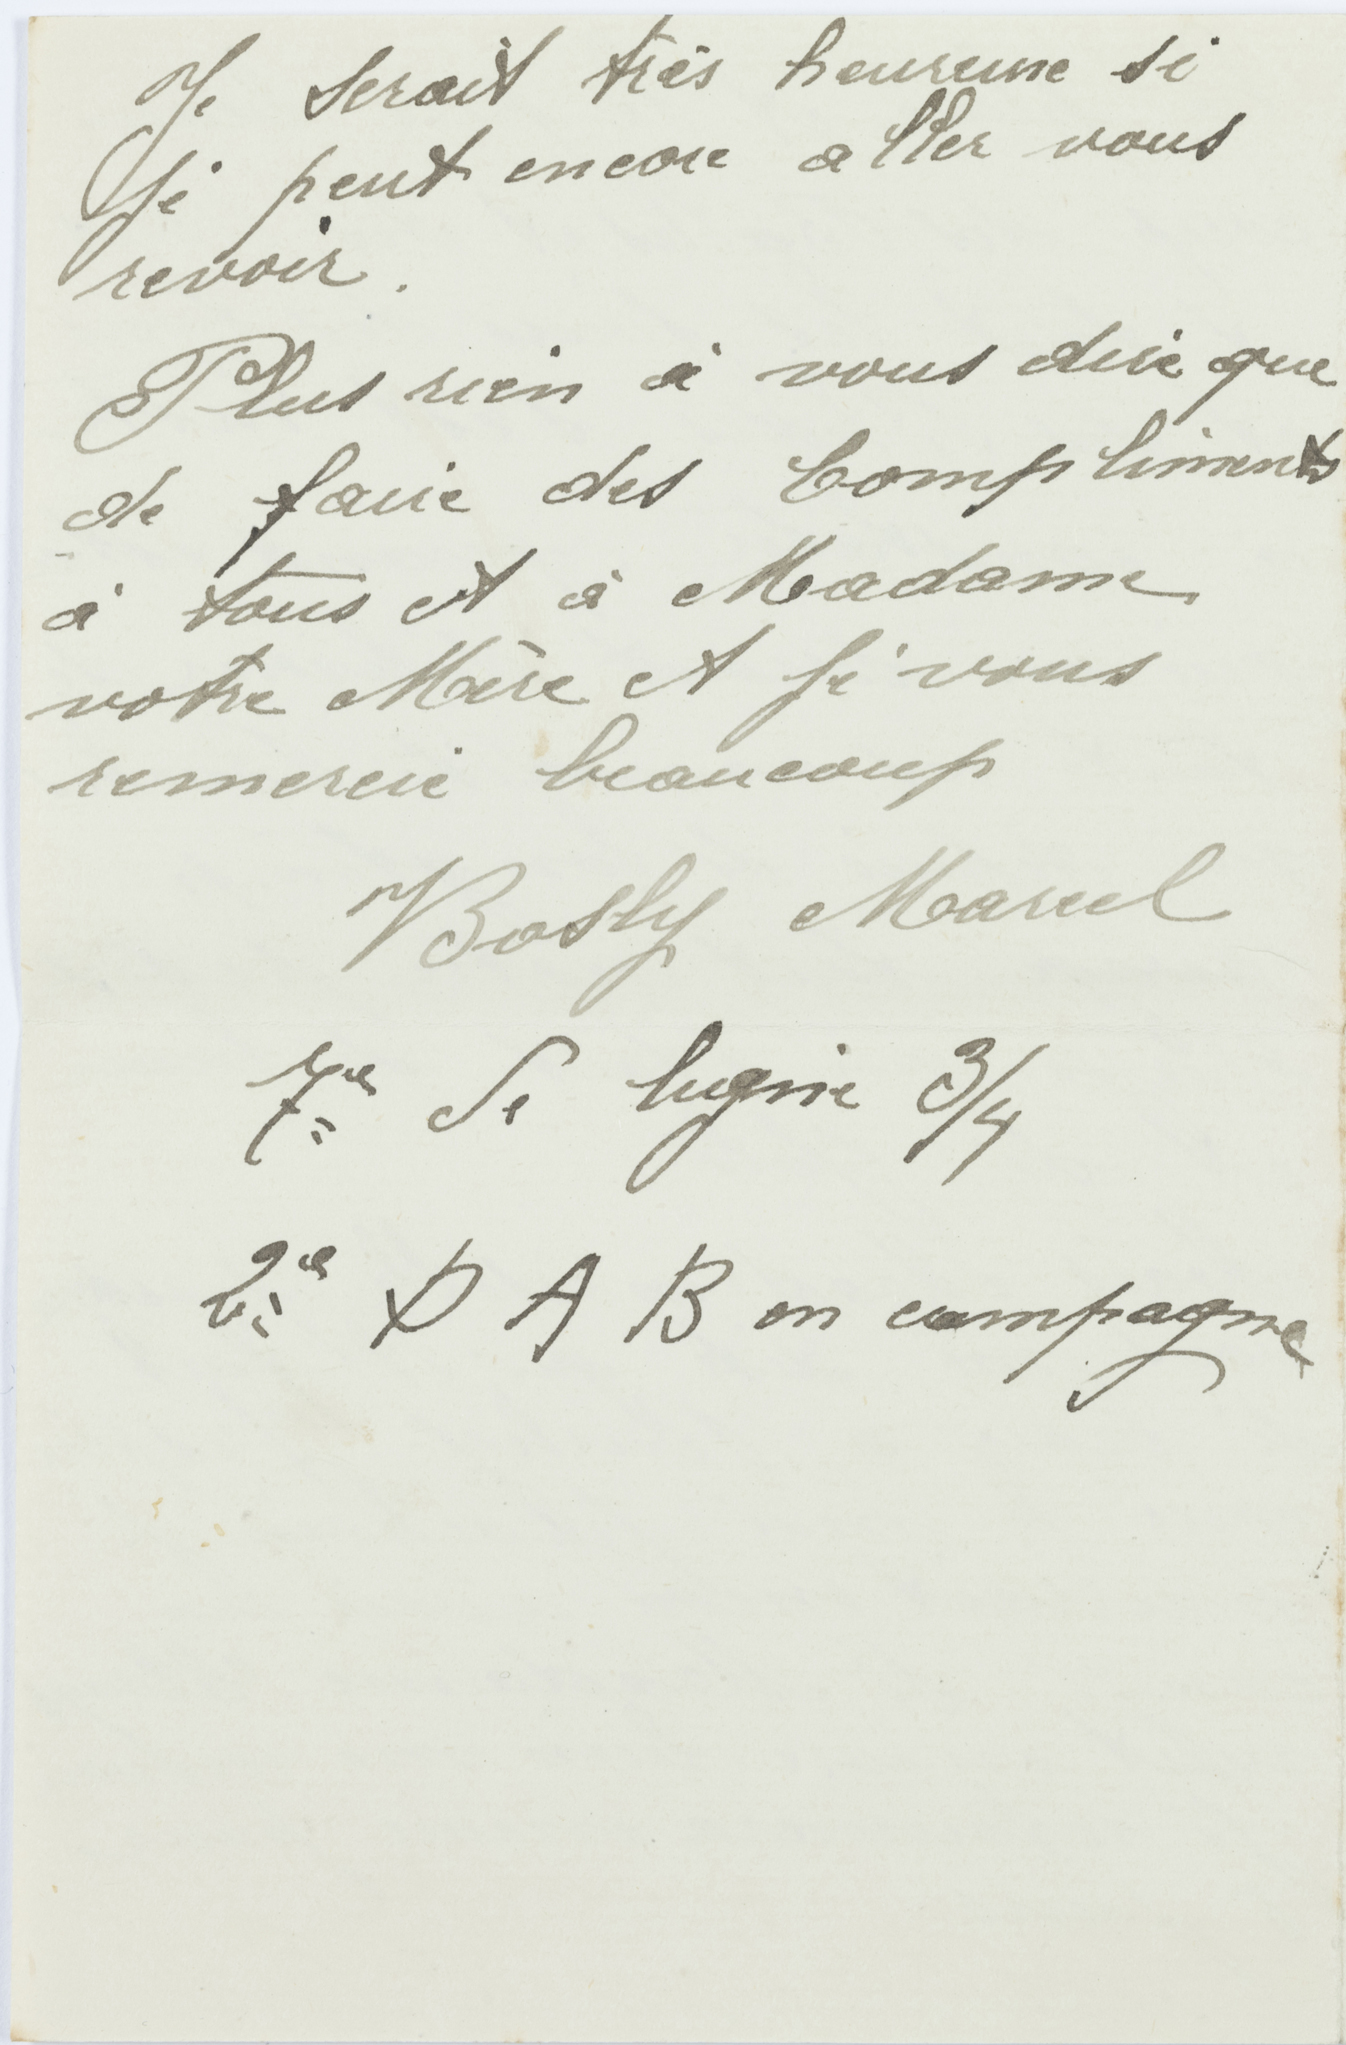 Je serait très heureuse si
je peut encore aller vous
revoir.
Plus rien à vous dire que
de faire des Compliments
à tous et à Madame
votre Mère et je vous
remercie beaucoup
Bosly Marcel
7e Se 3/4
2e D A B en campagne